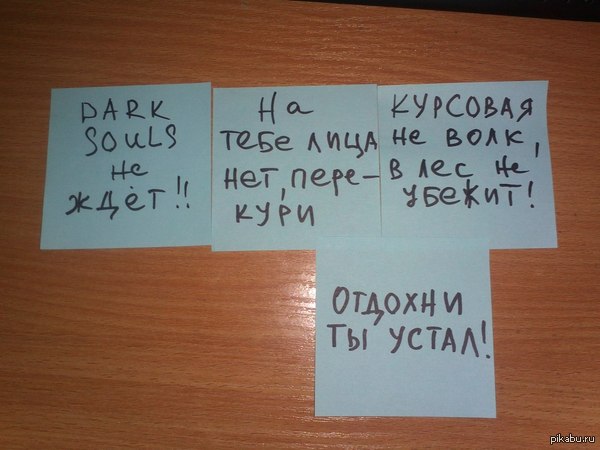 DARK
SOULS
не
ждёт!!
На
тебе лица
нет, пере-
кури
КУРСОВАЯ
не волк,
в лес не
убежит!
Отдохни
ты устал!
pikabu.ru